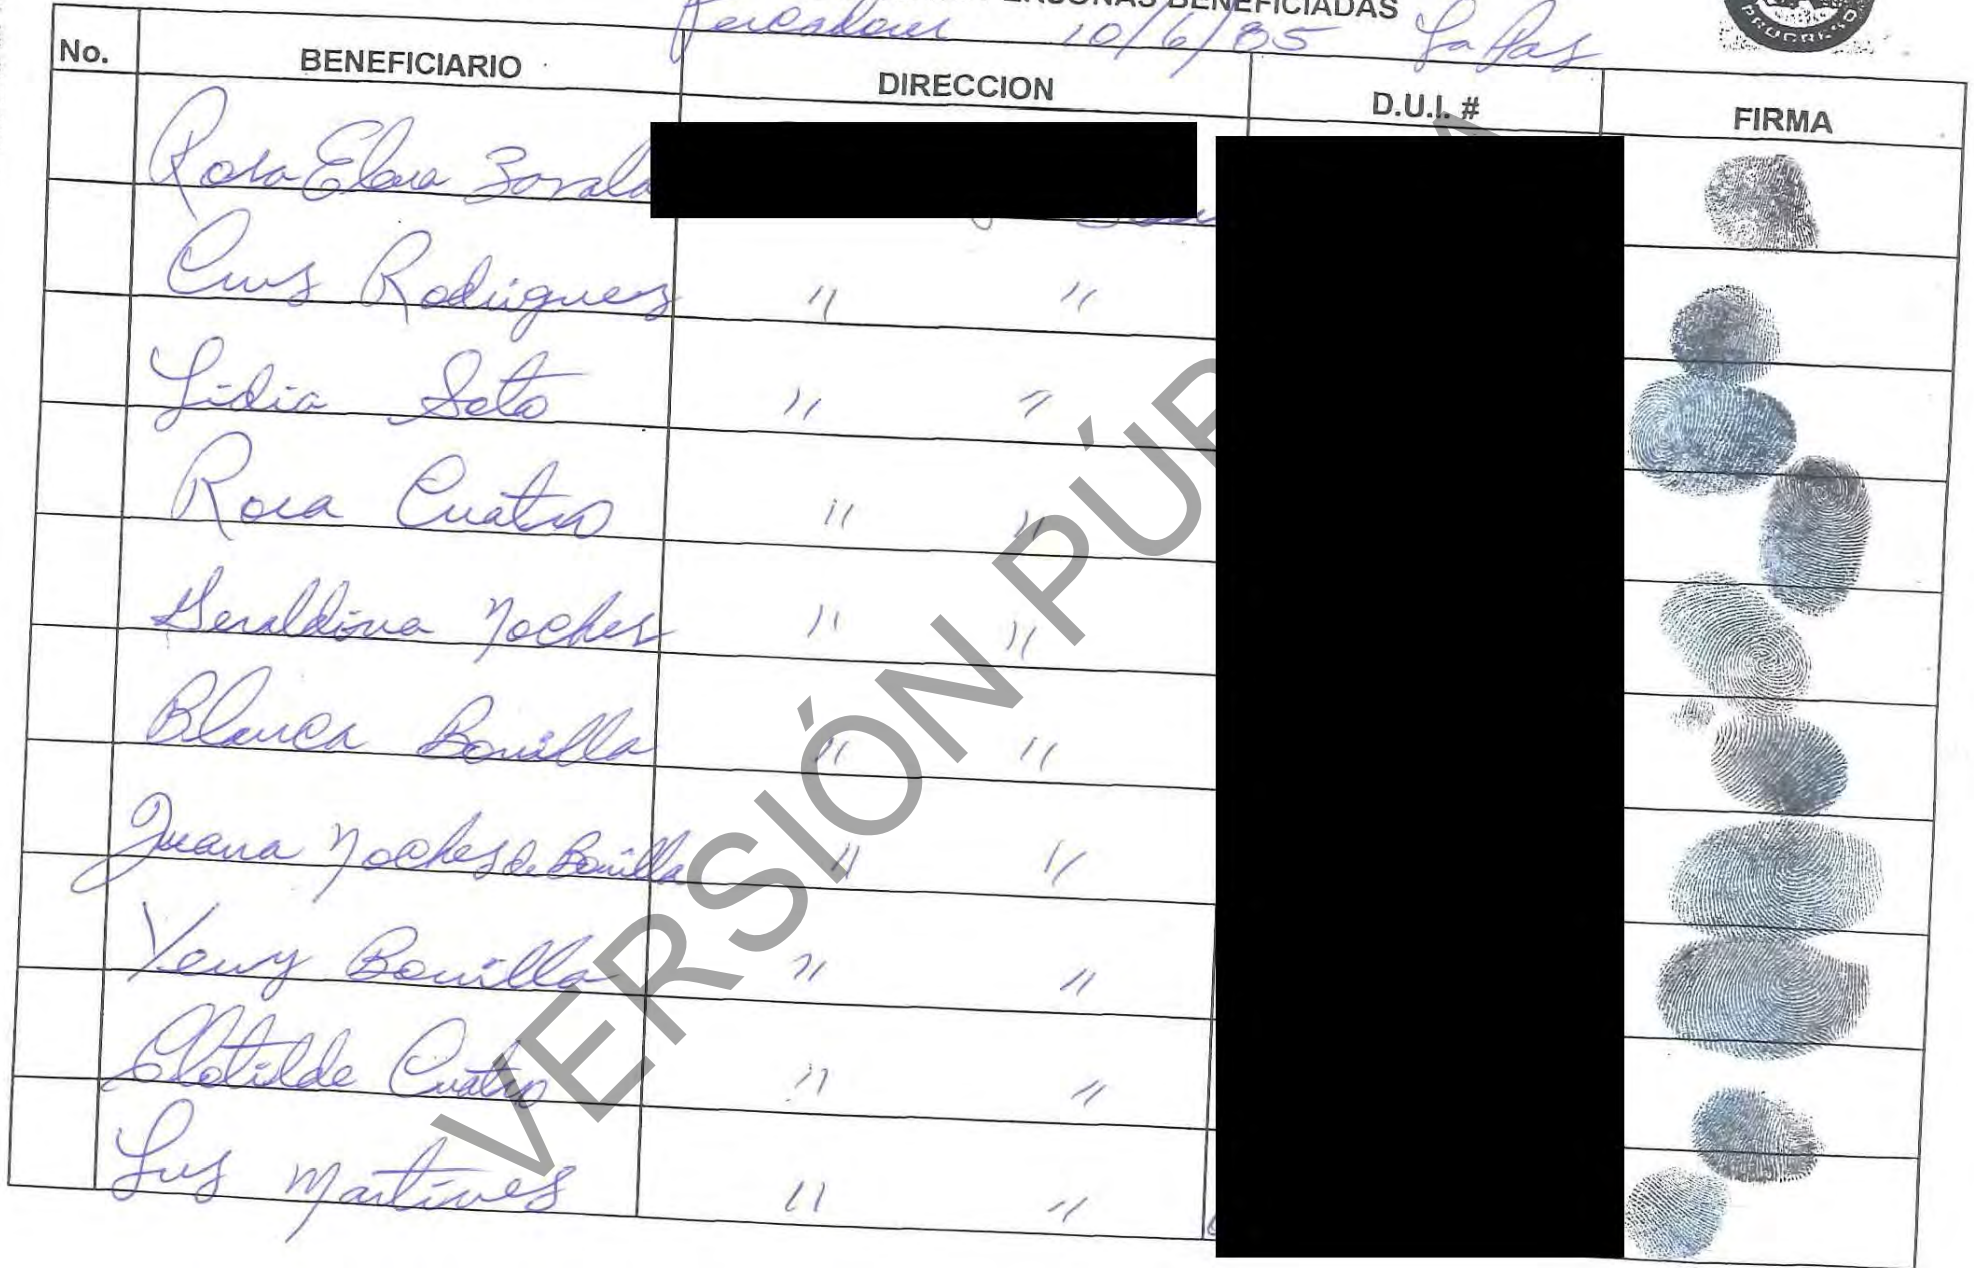 PERSONAS BENEFICIADAS
10/6/85 La Paz
No. BENEFICIARIO DIRECCION D.U.I. # FIRMA
Rosa Elena Zavala
Cruz Rodriguez " "
Lidia Soto " "
Rosa Cuatro " "
Geraldina Noches " "
Blanca Bonilla " "
Juana Noches de Bonilla " "
Yeny Bonilla " "
Clotilde Cuatro " "
Lus Martines " "
VERSIÓN PÚB
PROGRESO